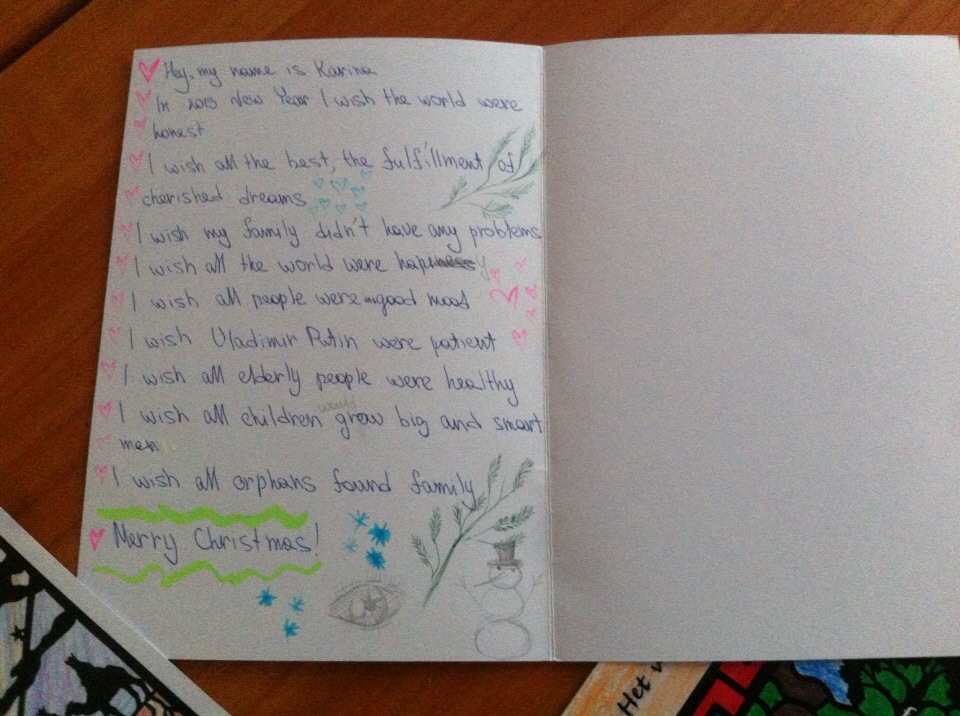 Hey, my name is Karina
In 2013 New Year I wish the world were
honest
I wish all the best, the fulfillment of
cherished dreams
I wish my family didn't have any problems
I wish all the world were happy
I wish all people were in good mood
I wish Vladimir Putin were patient
I wish all elderly people were healthy
I wish all children would grow big and smart
men
I wish all orphans found family
Merry Christmas!
Het